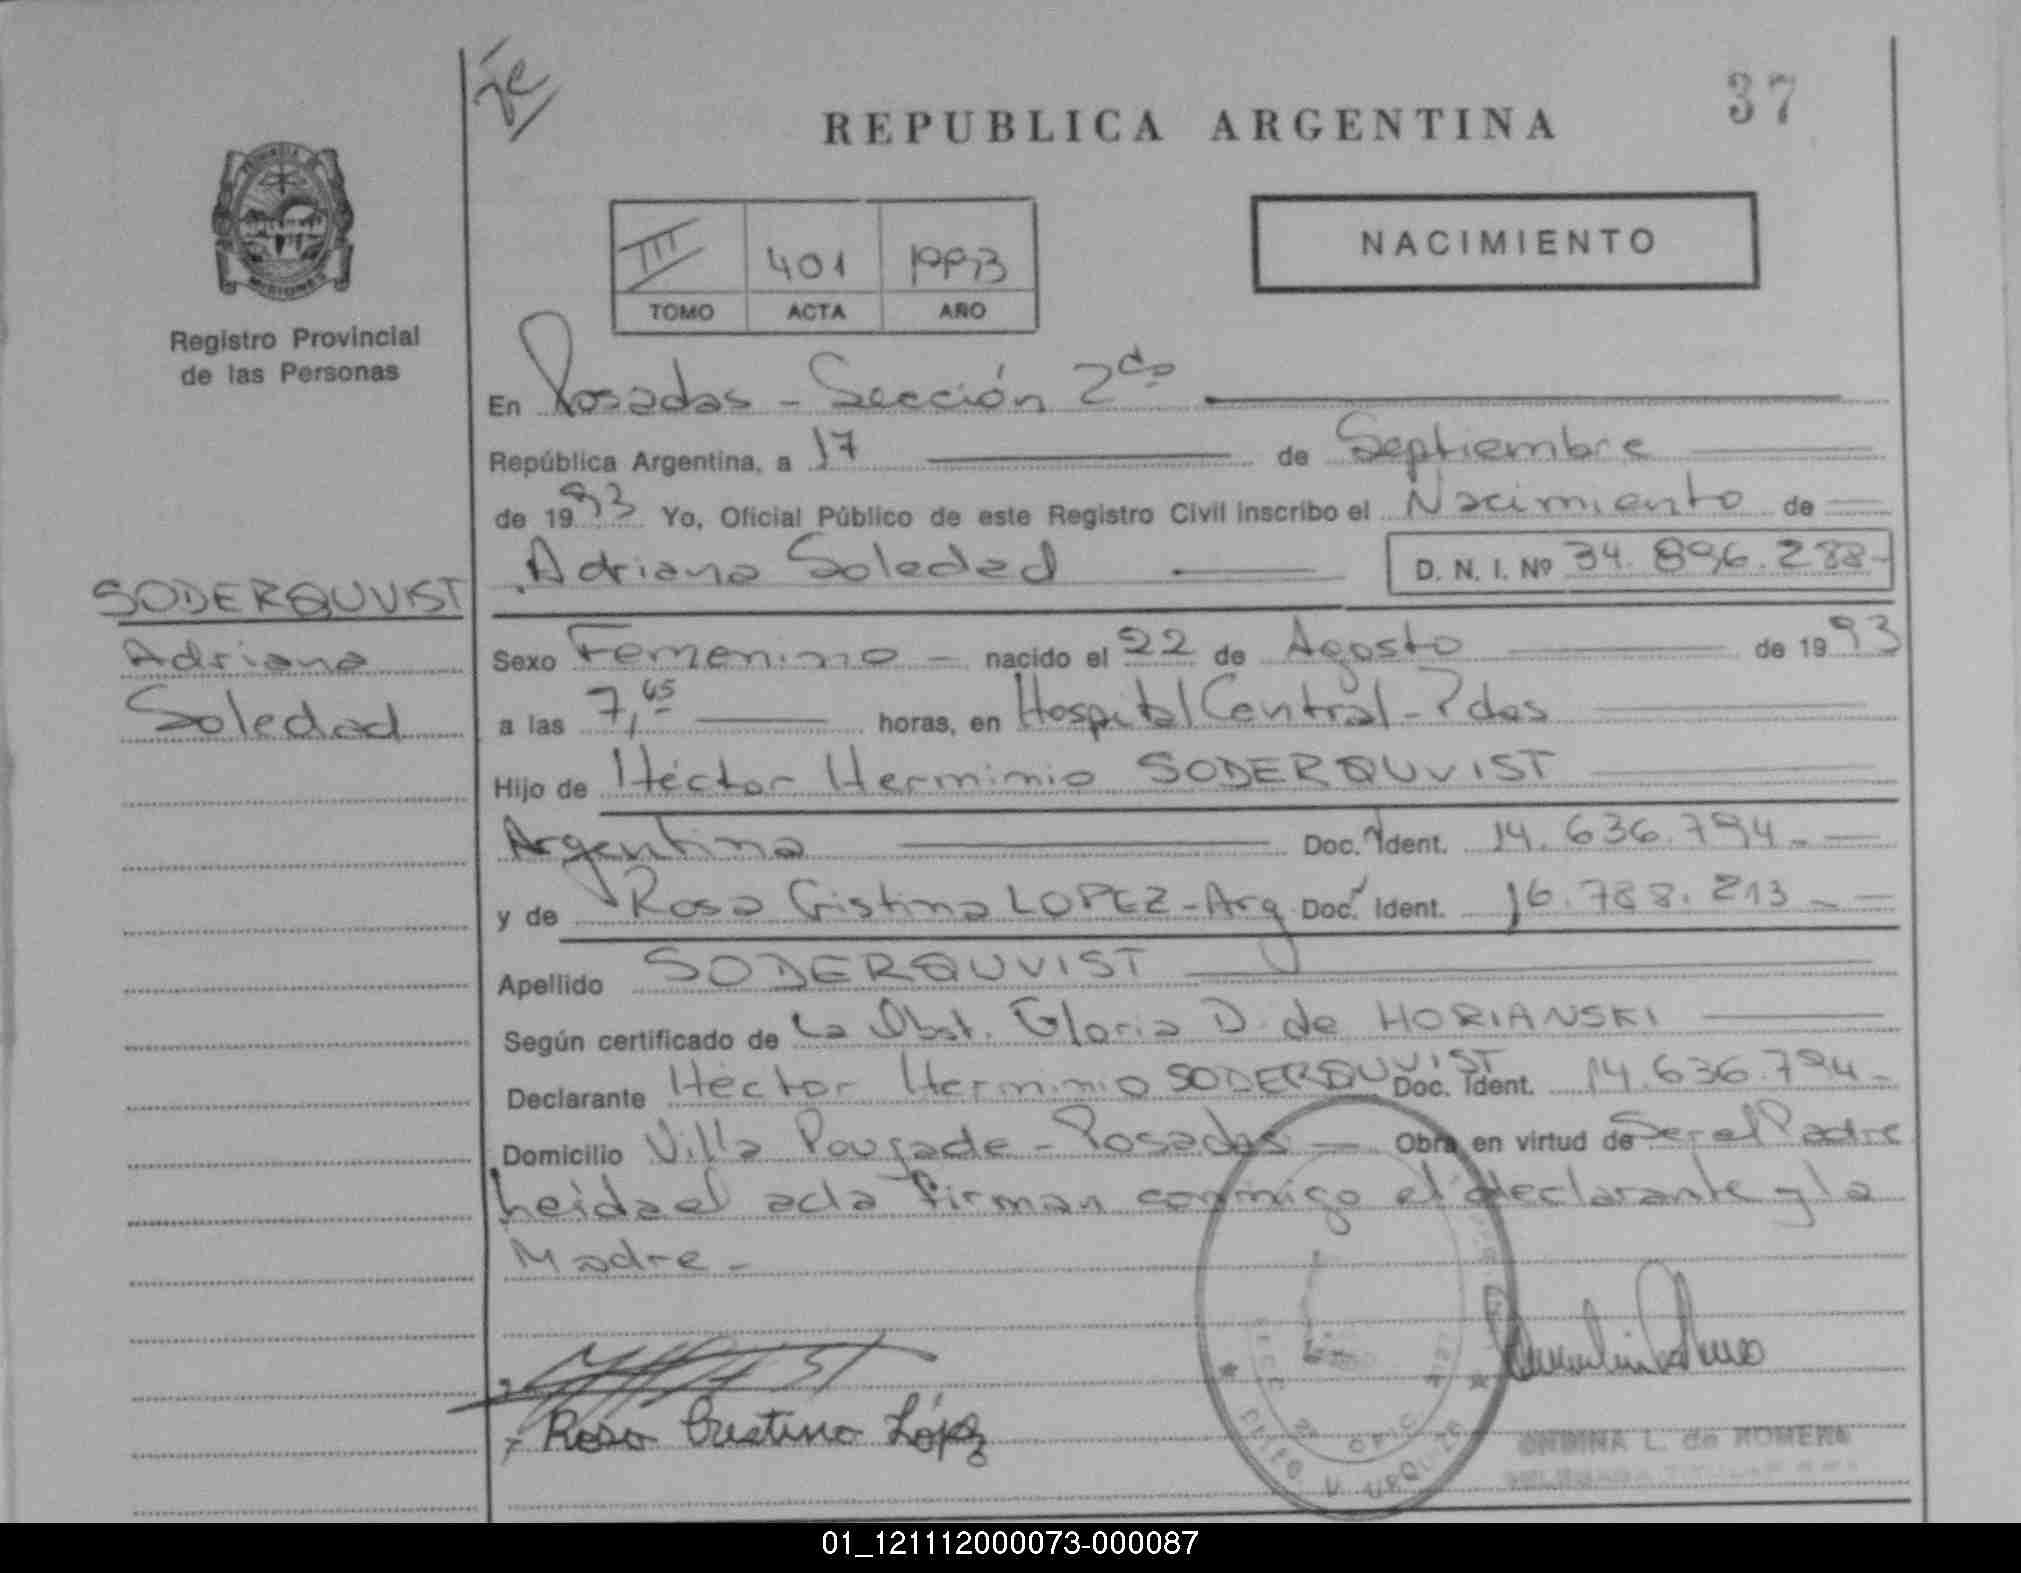 37
REPUBLICA ARGENTINA
NACIMIENTO
III 401 1993
TOMO ACTA AÑO
Registro Provincial
de las Personas
En Posadas - Sección 2da
República Argentina, a 17 de Septiembre
de 1993 Yo, Oficial Público de este Registro Civil inscribo el Nacimiento de
Adriana Soledad D. N. I. Nº 34.896.288-
SODERQUVIST
Adriana
Soledad
Sexo Femenino - nacido el 22 de Agosto de 1993
a las 7,45 horas, en Hospital Central - Pdas
Hijo de Héctor Herminio SODERQUVIST
Argentina Doc. Ident. 14.636.794-
y de Rosa Cristina LOPEZ - Arg Doc. Ident. 16.788.213-
Apellido SODERQUVIST
Según certificado de La Obst. Gloria D. de HORIANSKI
Declarante Héctor Herminio SODERQUVIST Doc. Ident. 14.636.794-
Domicilio Villa Poujade - Posadas - Obra en virtud de Ser el Padre
Leida el acta firman conmigo el declarante y la
Madre -
Rosa Cristina López
ONDINA L. de ROMERO
01_121112000073-000087